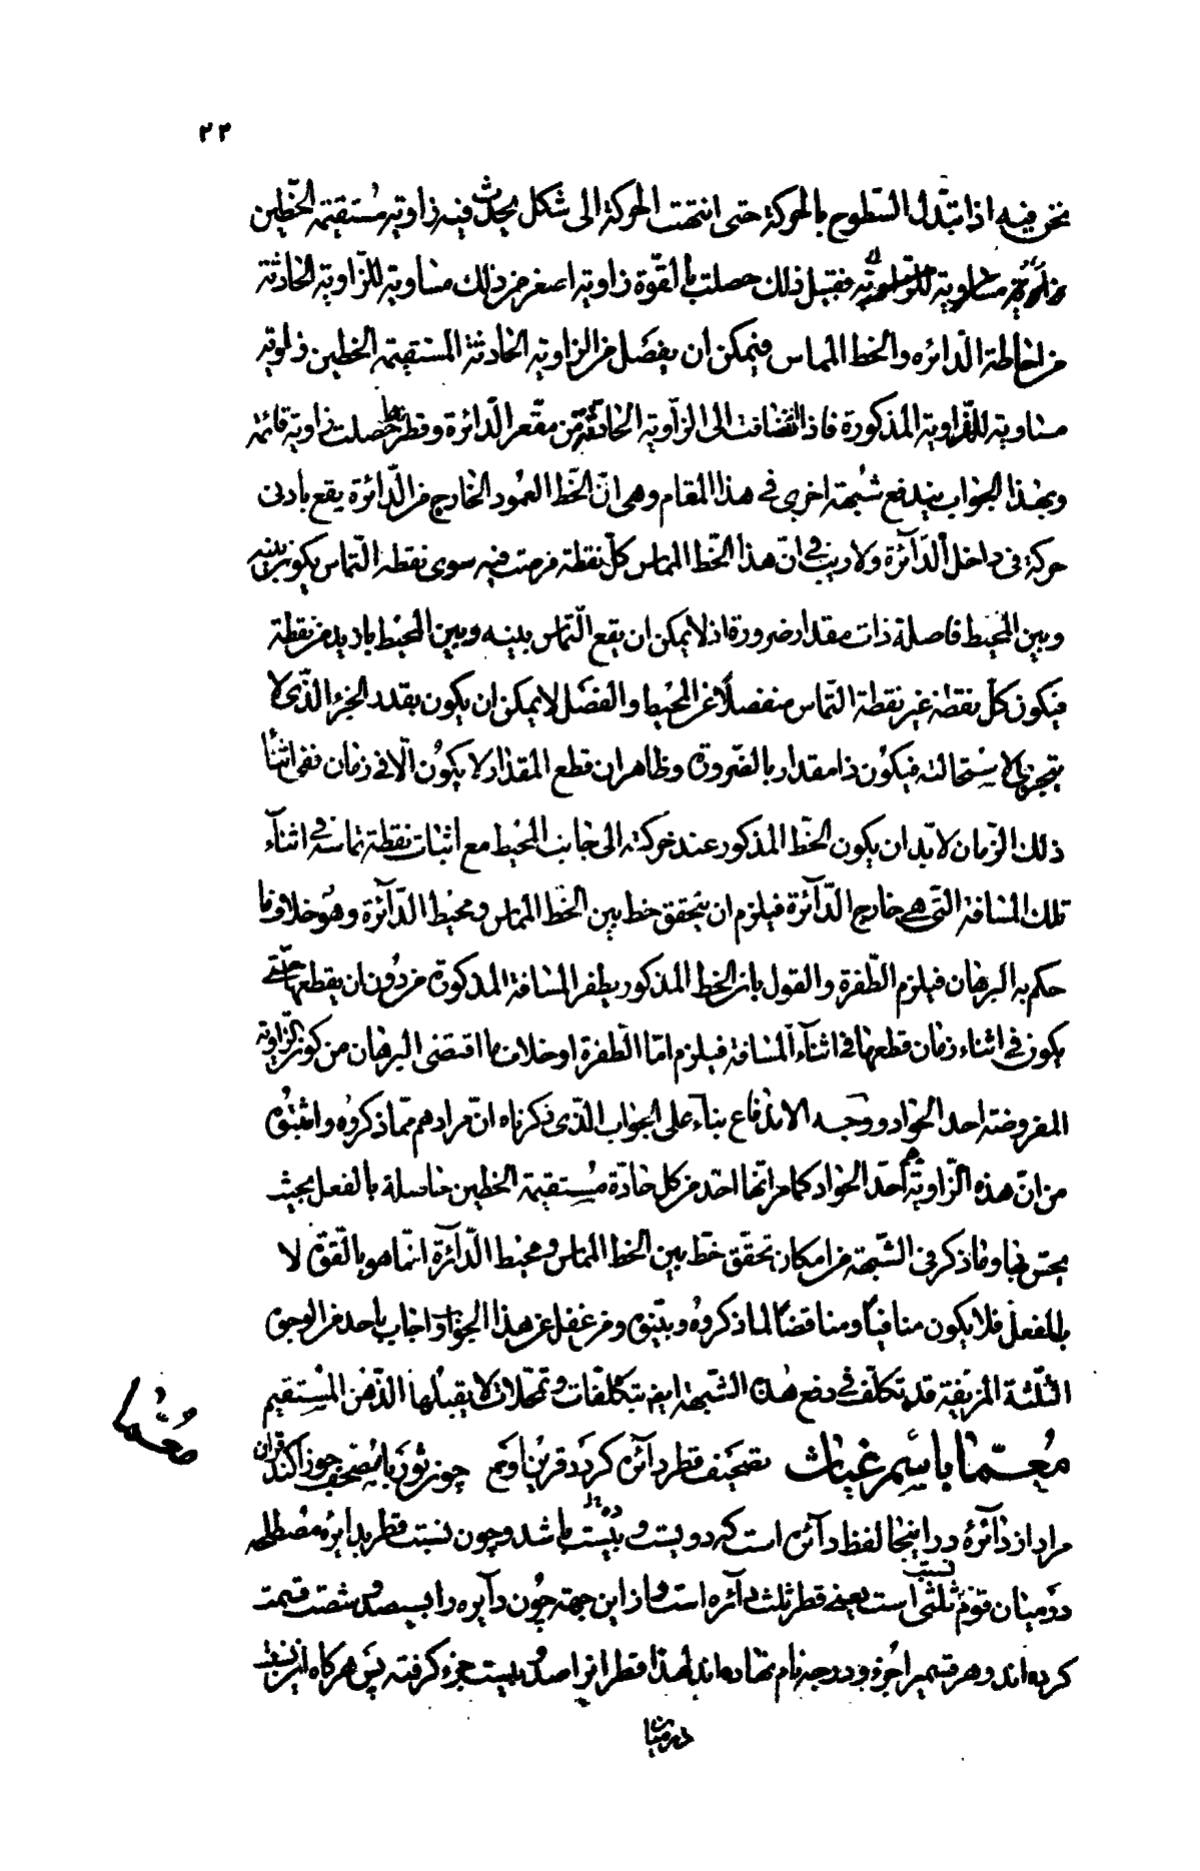 ۲۲
نحن فيه اذا تبدل السّطوح بالحركة حتى انتهت الحركة الى شكل يحدث فيه زاوية مستقيمة الخطّين
مساوية للزّاوية فقبل ذلك حصلت بالقوّة زاوية اصغر من ذلك مساوية للزّاوية الحادثة
من احاطة الدّائره والخط المماس فيمكن ان يفصل من الزاوية الحادثة المستقيمة الخطين زاوية
مساوية للزاوية المذكورة فاذا انضافت الى الزّاوية الحادثة من مقعر الدّائرة وقطرها حصلت زاوية قائمة
وبهذا الجواب يندفع شبهة اخرى فى هذا المقام وهى انّ الخّط العمود الخارج من الدّائرة يقع بادنى
حركة فى داخل الدّآئرة ولا ريب فى انّ هذا الخّط المماس كلّ نقطة فرضت فيه سوى نقطة التّماس يكون بينه
وبين المحيط فاصلة ذات مقدار ضرورة اذ لا يمكن ان يقع التّماس بينه وبين المحيط بازيد من نقطة
فيكون كلّ نقطة غير نقطة التّماس منفصلاً عن المحيط والفصل لا يمكن ان يكون بقدر الجزء الّذى لا
يتجزى لاستحالته فيكون ذا مقدار بالضّرورة وظاهر ان قطع المقدار لا يكون الّا فى زمان ففى اثنآء
ذلك الزّمان لا بّد ان يكون الخّط المذكور عند حركته الى جانب المحيط مع اثبات نقطة تماسه فى اثنآء
تلك المسافة التّى هى خارج الدّآئرة فيلزم ان يتحقق خط بين الخط المماس ومحيط الدّآئرة وهو خلاف ما
حكم به البرهان فيلزم الطّفرة والقول بان الخط المذكور يطفر المسافة المذكورة من دون ان يقطعها حتّى
يكون فى اثناء زمان قطعها فى اثنآء المسافة فيلزم امّا الطّفرة او خلاف ما اقتضى البرهان من كون الزّاوية
المفروضة احد الحوادّ ووجه الاندفاع بنآء على الجواب الّذى ذكرناه انّ مرادهم ممّا ذكروه واثبتوه
من انّ هذه الزّاوية احدّ الحوادّ كما مرّ انّها احدّ من كل حادّة مستقيمة الخطين حاصلة بالفعل بحيث
يحسّ بها وما ذكر فى الشّبهة من امكان تحقّق خّط بين الخط المماس ومحيط الدّآئرة انّما هو بالقوّة لا
بالفعل فلا يكون منافياً ومناقضاً لما ذكروه وبيّنوه ومن غفل عن هذا الجواب واجاب باحد من الوجوه
الثلثة المزيفة قد تكلّف فى دفع هذه الشّبهة ايضا بتكلفات وتمحّلات لا يقبلها الذّهن المستقيم
معّما
معّما باسم غياث تصحيف قطر دآئره كرد قرين چون
مراد از دآئره در اينجا لفظ دآئره است كه دويست و بيست باشد وچون نسبت قطر بدايره مصطلحه
در ميان قوم نسبت ثلثى است يعنى قطر ثلث دآئره است واز اين جهة چون دآيره را سيصد و شصت قسمت
كرده اند وهر قسمى را جزو و درجه نام نهاده اند لهذا قطر انرا صد و بيست جزء كرفته پس هركاه اين نسبت
در ميان